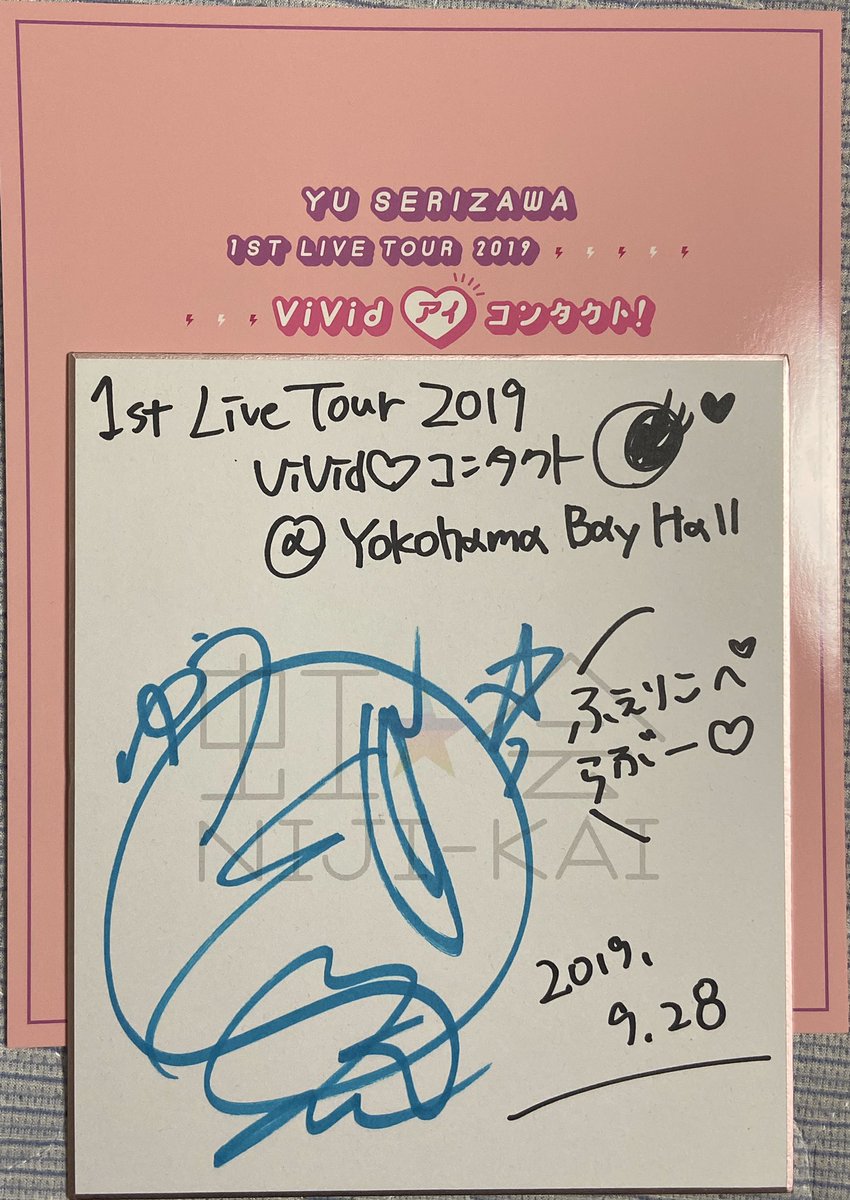 YU SERIZAWA
1ST LIVE TOUR 2019
ViVid アイ コンタクト!
1st Live Tour 2019
ViVid♡コンタクト
@ Yokohama Bay Hall
虹★会
NIJI-KAI
ふぇりこへ♥
らぶー♡
2019.
9.28